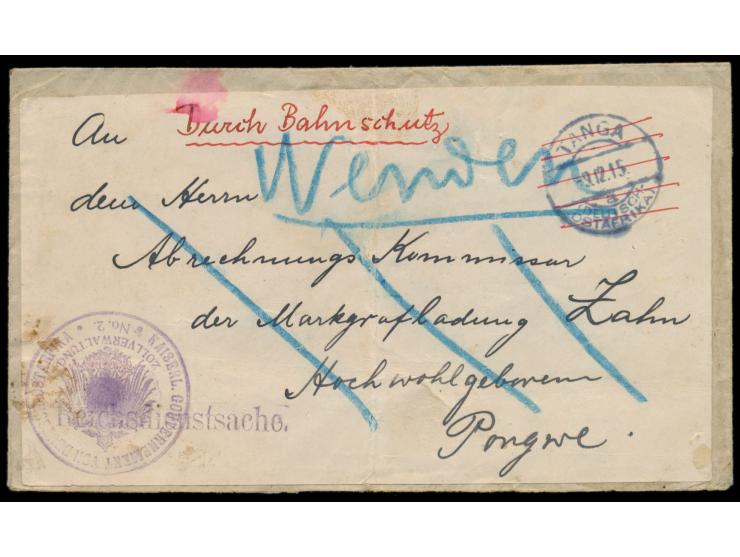 Durch Bahnschutz
An
Wenden
dem Herrn
Abrechnungs Kommissar
der Markgrafladung Zahn
Hochwohlgeboren
Pongwe.
TANGA
12.15.
a
DEUTSCH-
OSTAFRIKA
KAISERL. GOUVERNEMENT VON
ZOLLVERWALTUNG
No. 2.
Reichsdienstsache.